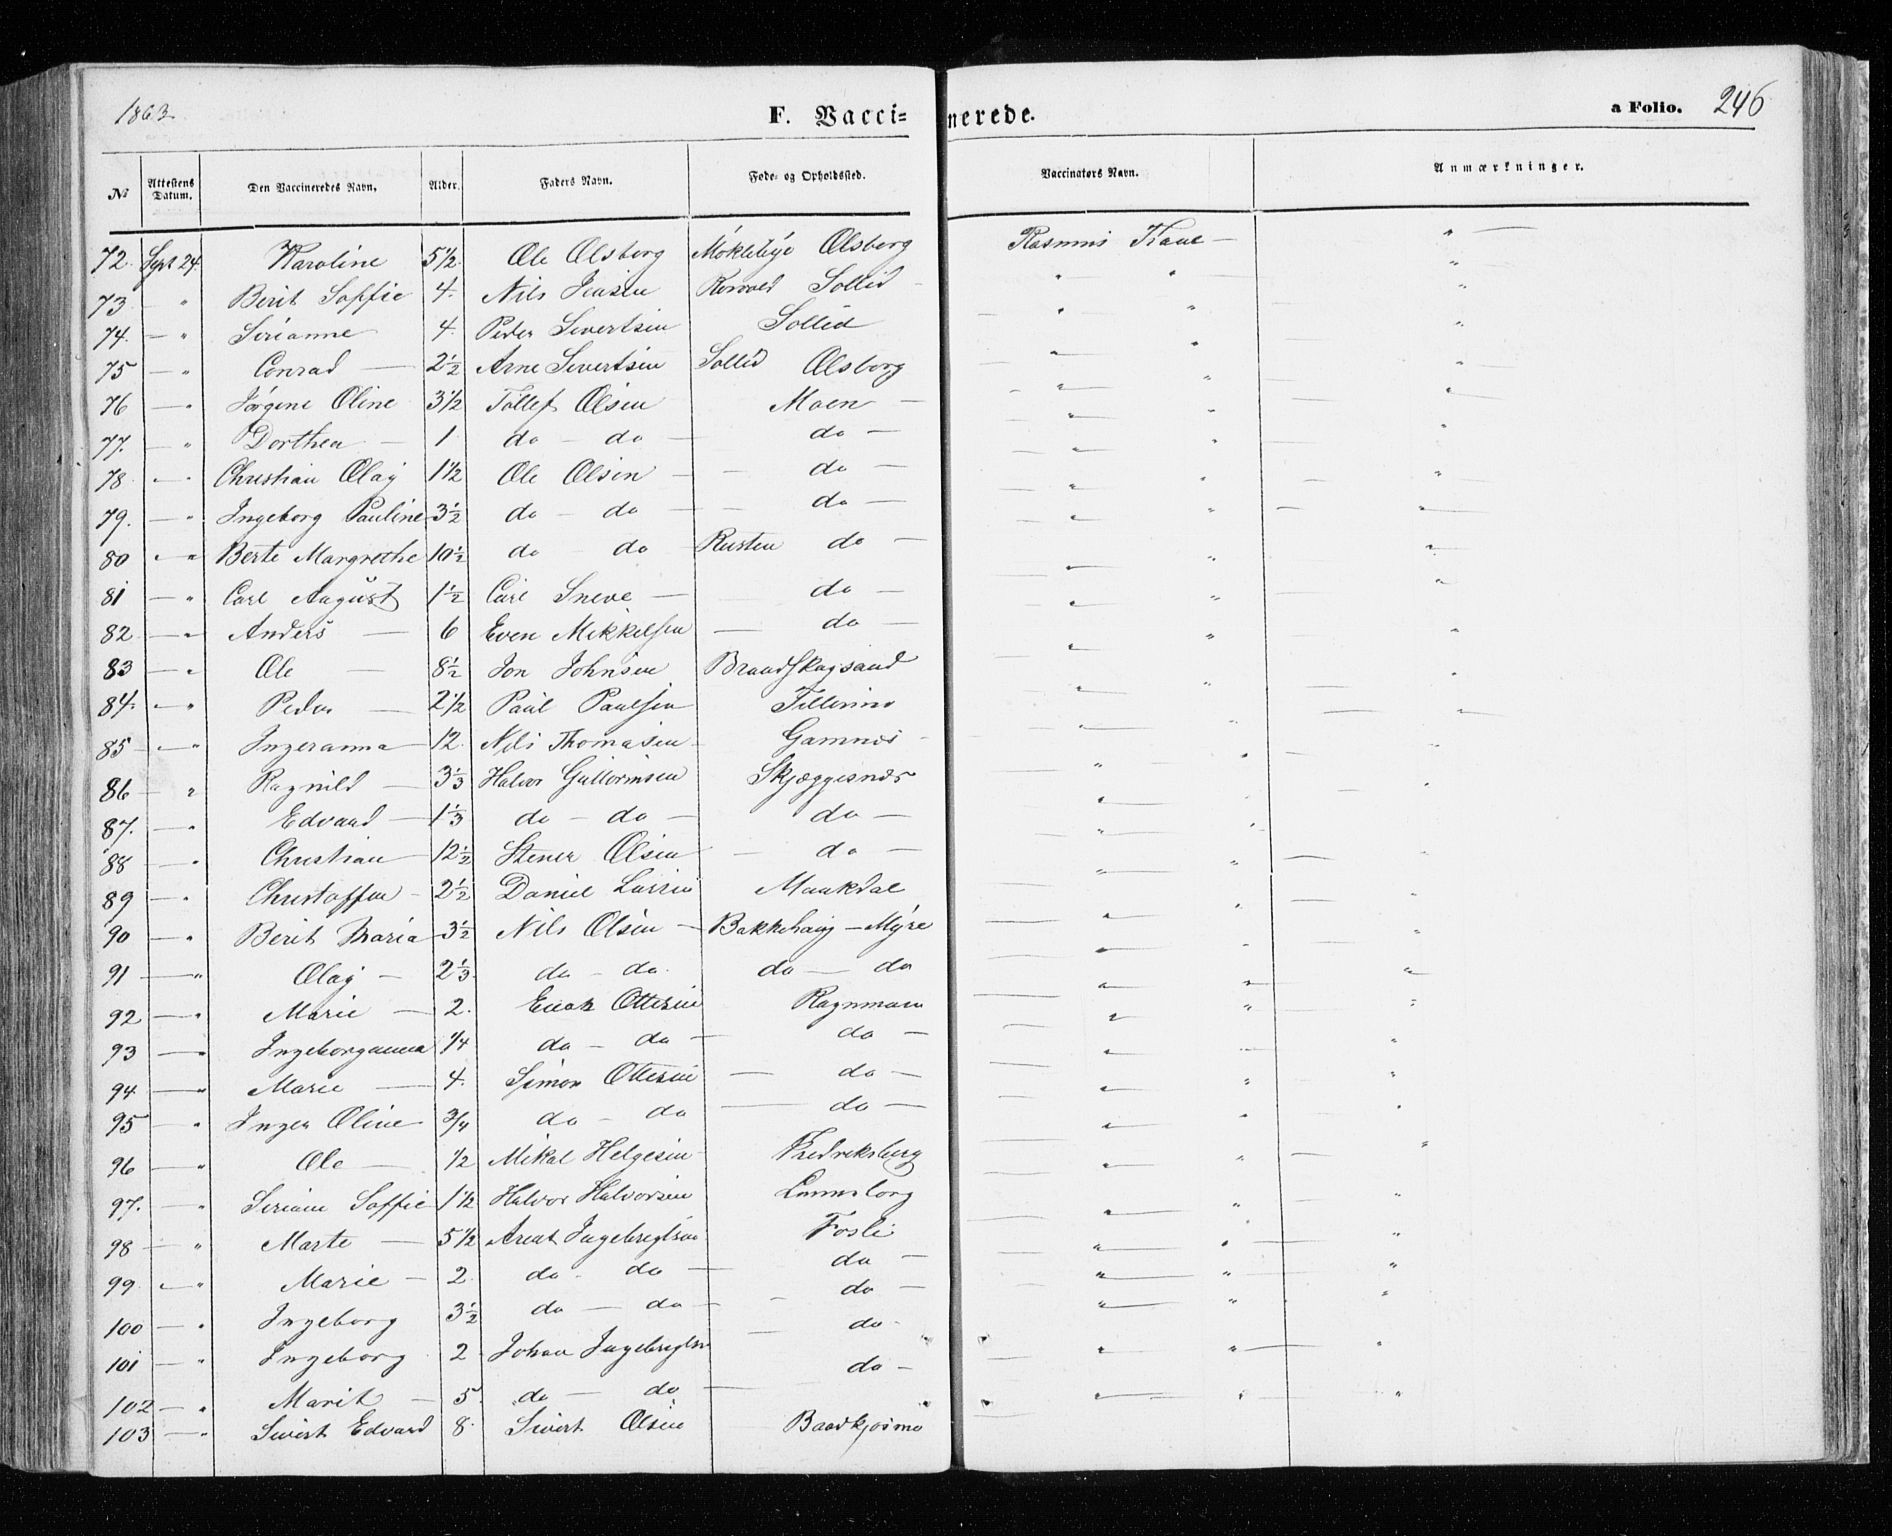 1863.
F. Vaccinerede.
a Folio. 246
No Attestens Datum. Den Vaccineredes Navn. Alder. Faders Navn. Føde- og Opholdssted. Vaccinators Navn. Anmærkninger.
72. Sept 24 Karoline 5 1/2 Ole Olsborg Møklebye Olsborg Rasmus — "
73 — " Berit Soffie 4. Nils Jensen Sollid " "
74. — " Serianne 4. Peder Sivertsen Sollid " "
75 — " Conrad — 2 1/2 Arne Sivertsen Sollid Olsborg " "
76 — " Jørgine Oline 3 1/2 Tollef Olsen Moen — " "
77. — " Dorthea — 1 do — do — do — " "
78 — " Christian Olaj 1 1/2 Ole Olsen — do — " "
79. — " Ingeborg Pauline 3 1/2 do — do — do — " "
80 — " Berte Margrethe 10 1/2 do — do Rusten do — " "
81 — " Carl August 1 1/2 Carl Sneve — do — " "
82 — " Anders — 6 Even Mikkelsen — do — " "
83 — " Ole — 8 1/2 Jon Johnsen Braadskogsand " "
84. — " Peder — 2 1/2 Paul Paulsen " "
85 — " Ingeranna — 12. Nils Thomasen Gamnes — " "
86 — " Ragnild — 3 1/3 Halvor Guttormsen Skjæggesnes " "
87. — " Edvard — 1 1/3 do — do — do — " "
88 — " Christian — 12 1/2 Stener Olsen — do — " "
89 — " Christoffer 2 1/2 Daniel Larsen Maukdal " "
90 — " Berit Maria 3 1/2 Nils Olsen — Bakkehaug — Myre " "
91 — " Olaj — 2 1/3 do — do do — do " "
92 — " Marie — 2. Enok Ottesen Ragnmoen " "
93 — " Ingeborganna 1/4 do — do — do — " "
94 — " Marie — 4. Simon Ottesen — do — " "
95 — " Inger Oline 3/4 do — do — do — " "
96 — " Ole — 1/2 Mikal Helgesen Fredriksberg " "
97. — " Soffie 1 1/2 Halvor Halvorsen " "
98 — " Marte — 5 1/2 Arent Ingebrigtsen Fosli " "
99. — " Marie — 2 do — do — do — " "
100 — " Ingeborg 3 1/2 do — do — do — " "
101 — " Ingeborg 2 Johan Ingebrigtsn — do " "
102 — " Marit — 5. do — do — do — " "
103 — " Sivert Edvard 8 Sivert Olsen Baadkjosmo " "